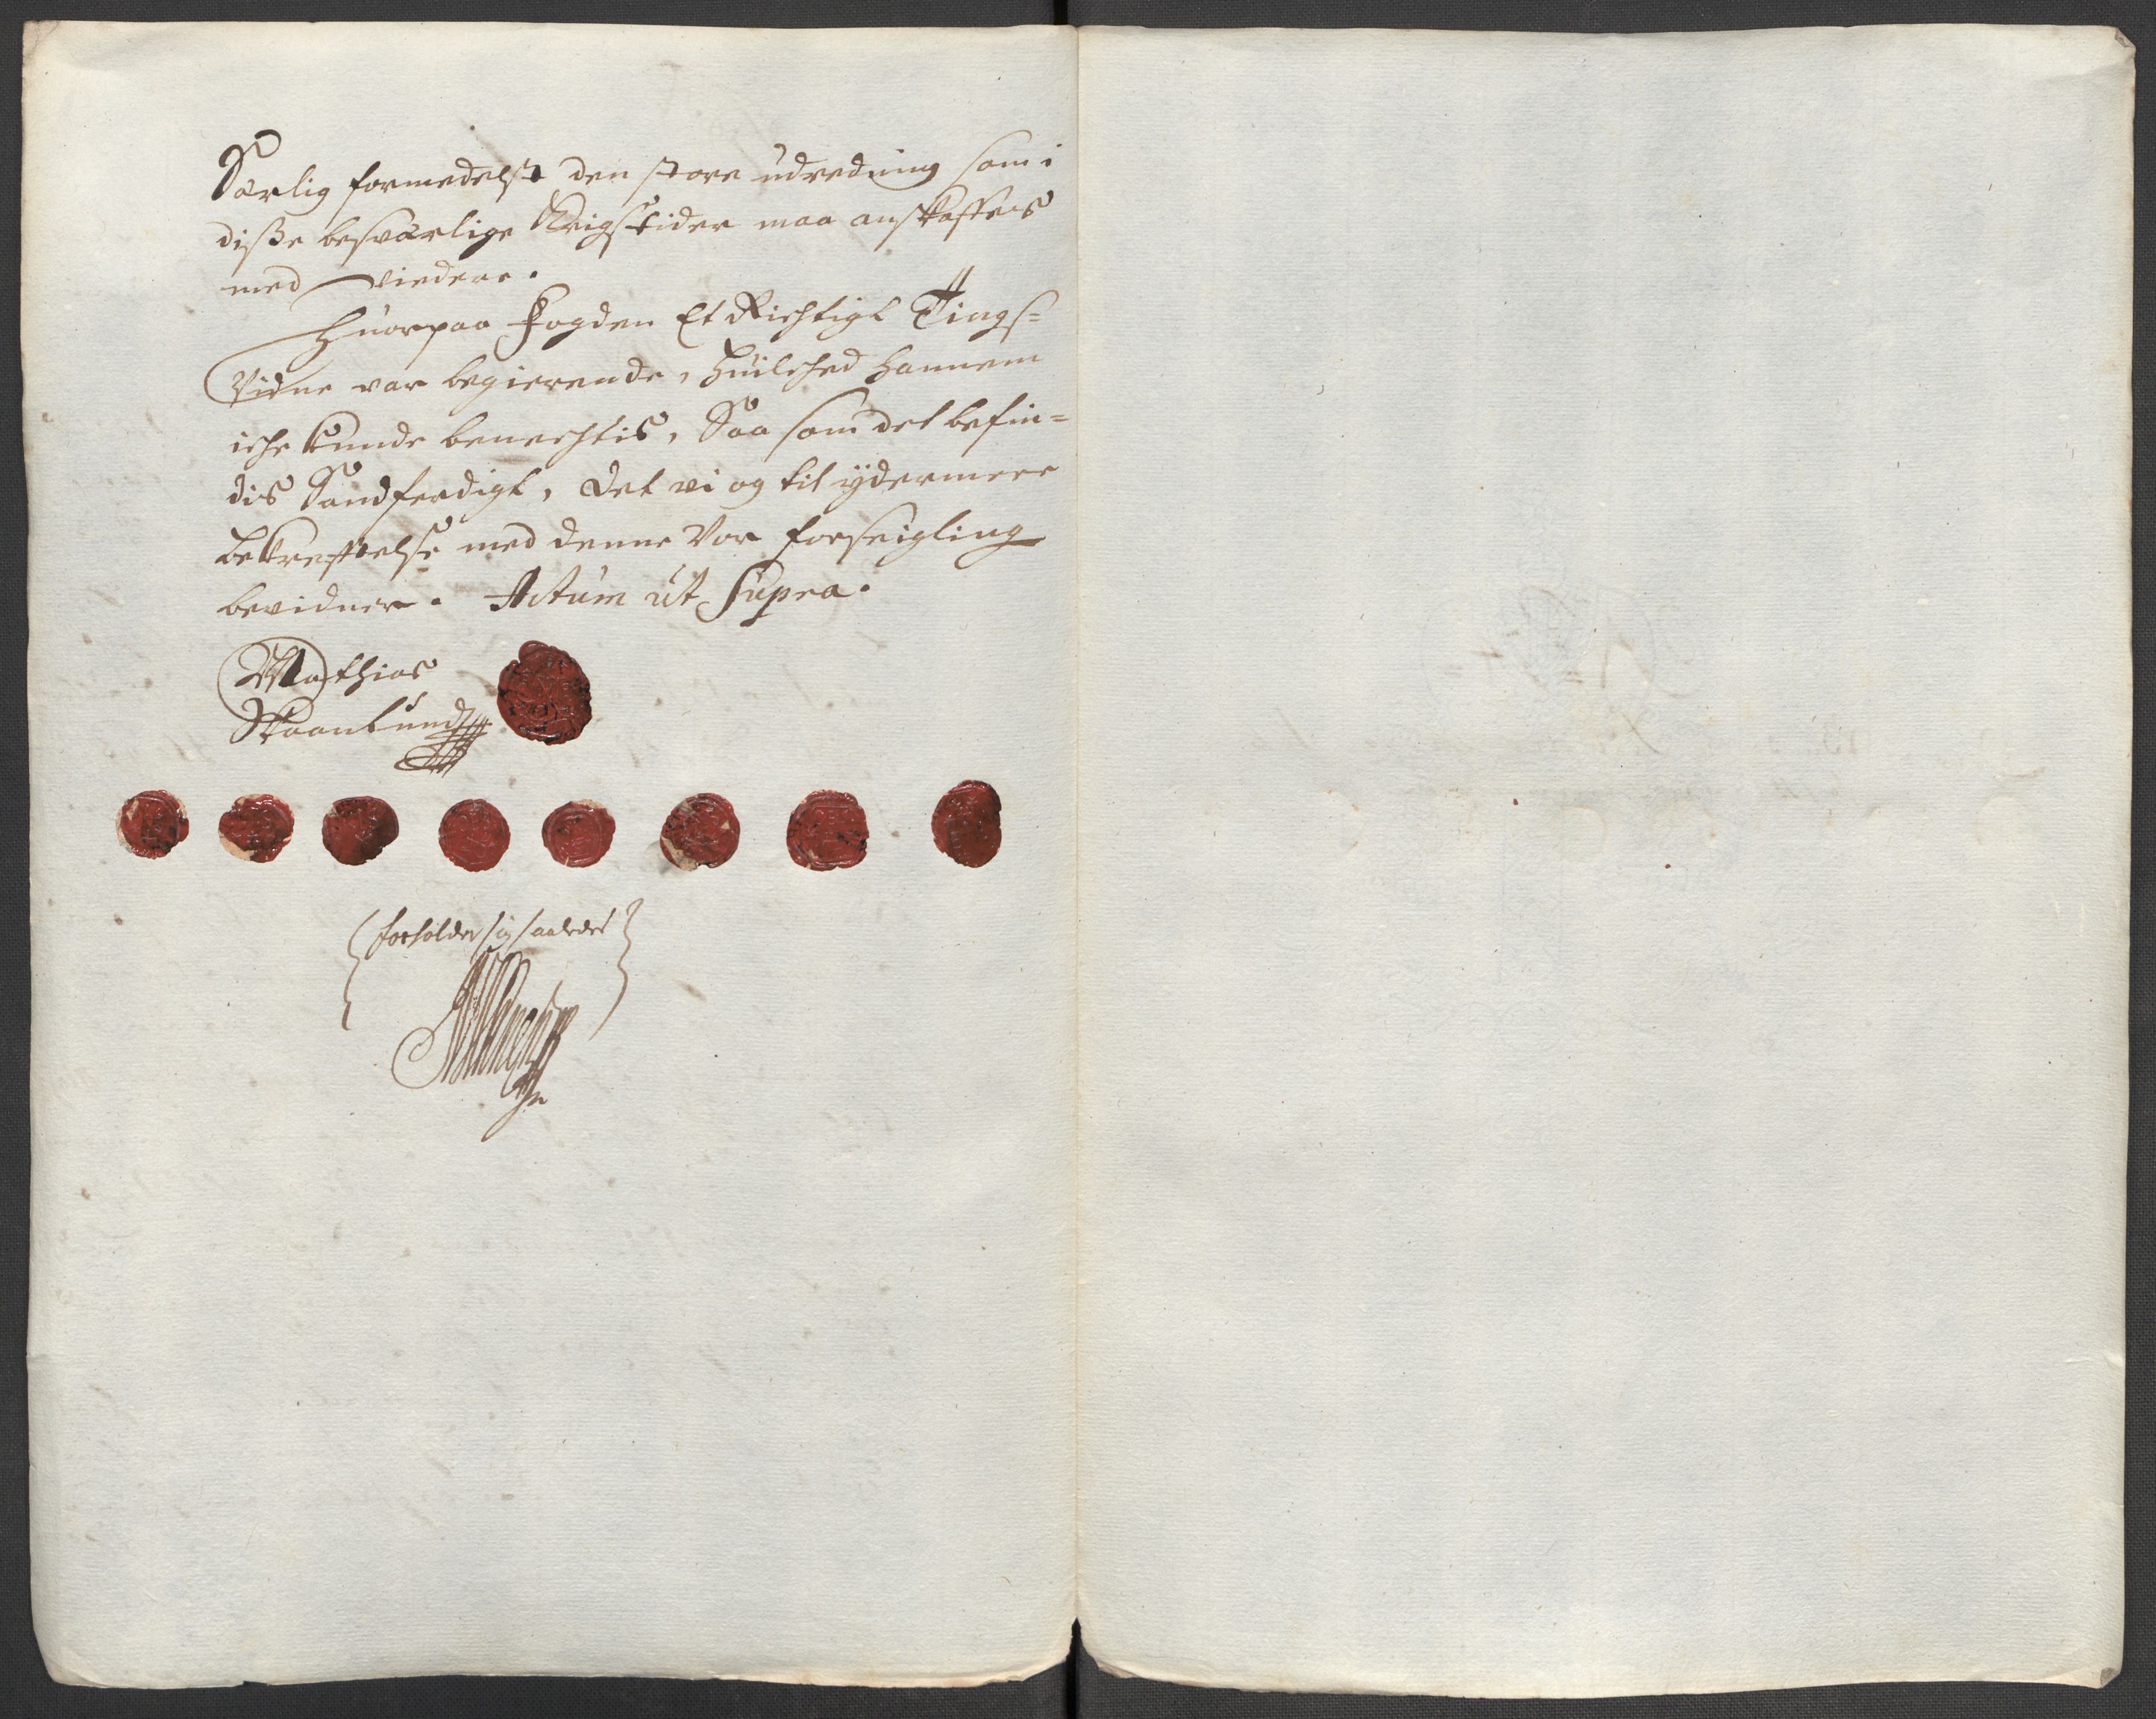 Særlig formedelst den store udredning som i
disze besværlige Krigstider maa anskaffes
med viedere.
Huorpaa Fogden Et Richtigt Tings=
Vidne var begierende, huilched hannem
iche kunde benechtis, Saa som det befin=
dis Sandferdigt, Det vi og til ydermere
bekreftelse med denne Vor forseigling
bevidner. Actum ut Supra.
Mathias
Skaanlund
forholder sig saaledes